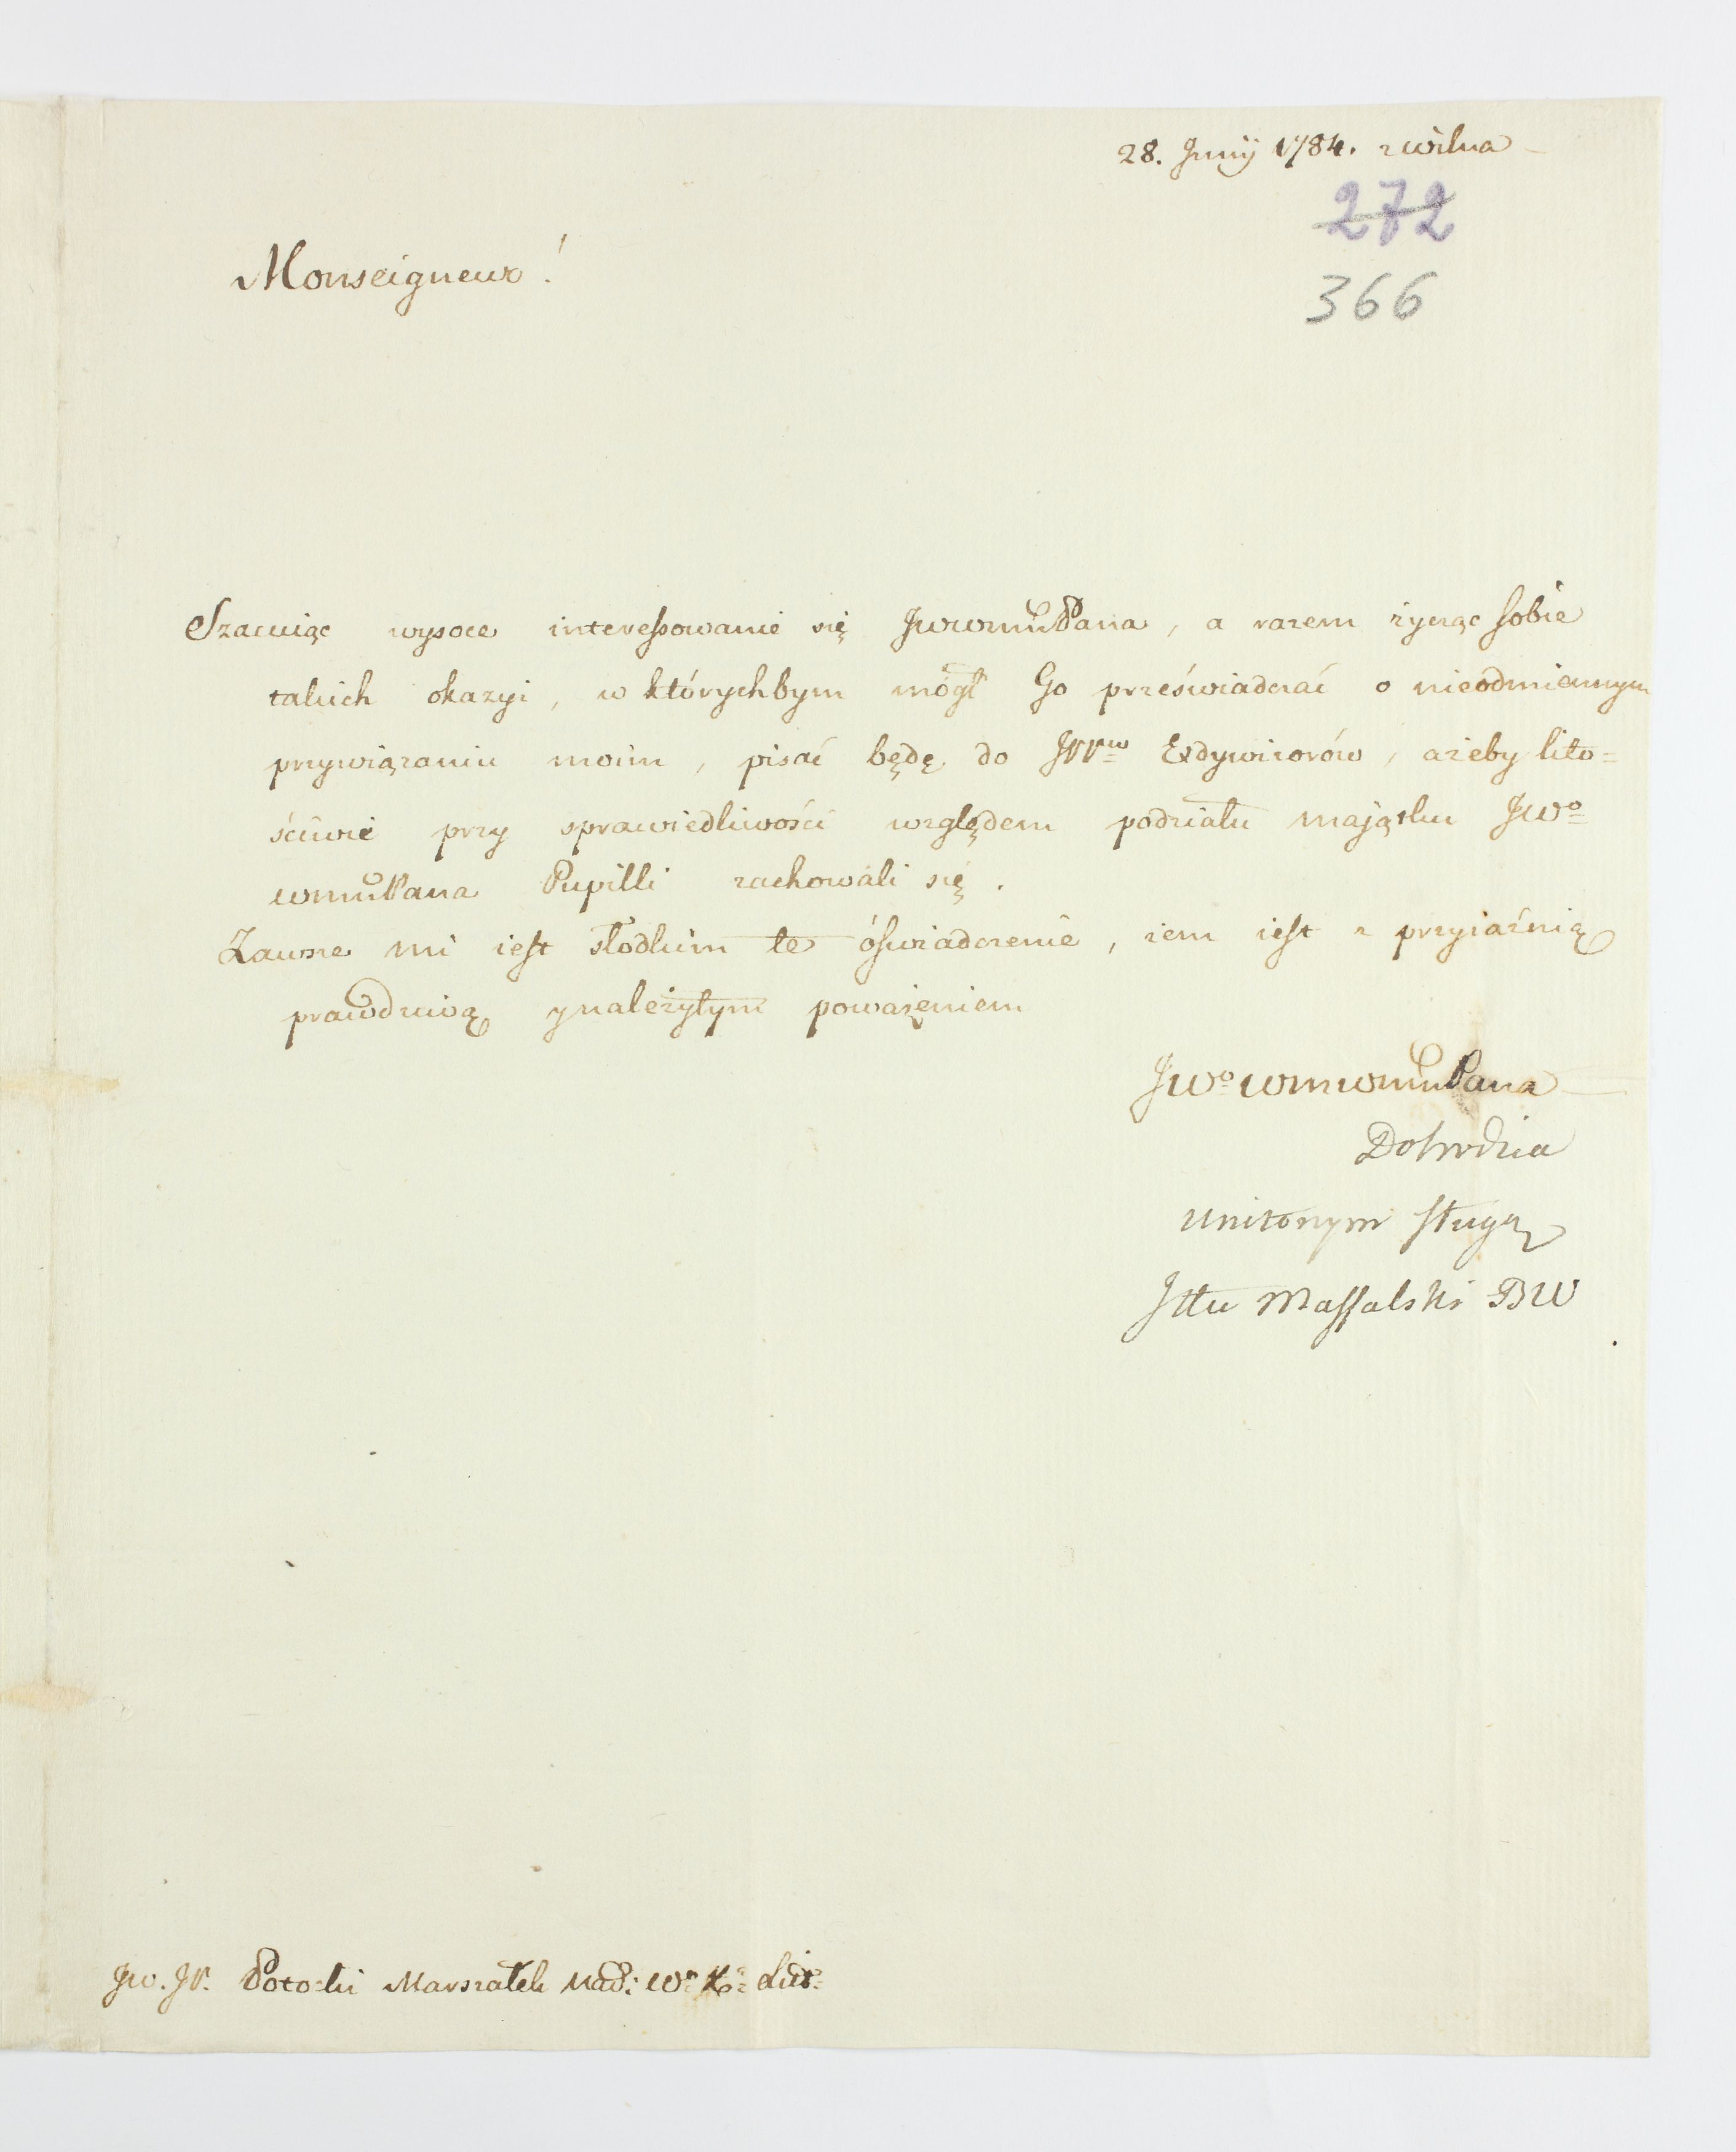 28. Junij 1784. z Wilna
272
366
Monseigneur!
Szacuiąc wysoce interessowanie się JWWmmPana, a razem życząc sobie
takich okazyi, w którychbym mógł Go przeświadczać o nieodmiennym
przywiązaniu moim, pisać będę do JPPów Exdywizorów, ażeby lito=
ściwie przy sprawiedliwości względem podziału majątku JWo
WmmPana Pupilli zachowali się.
Zawsze mi iest słodkim te óświadczenie, żem iest z przyiaźnią
prawdziwą y należytym poważeniem
JWo WmWmmPana
Dobrodzia
uniżonym sługą
Massalski BW
JW. JP. Potocki Marszałek Nad: Wo Xa Lit: